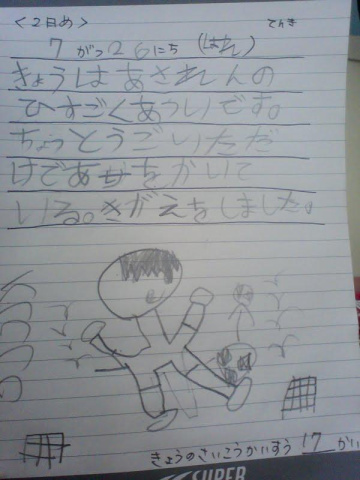 <2日め>
てんき
7がつ26にち (はれ)
きょうはあされんの
ひすごくあついです。
ちょっとうごいただ
けであせをかいて
いる。きがえをしました。
きょうのさいこうかいすう 17 かい
SUPER